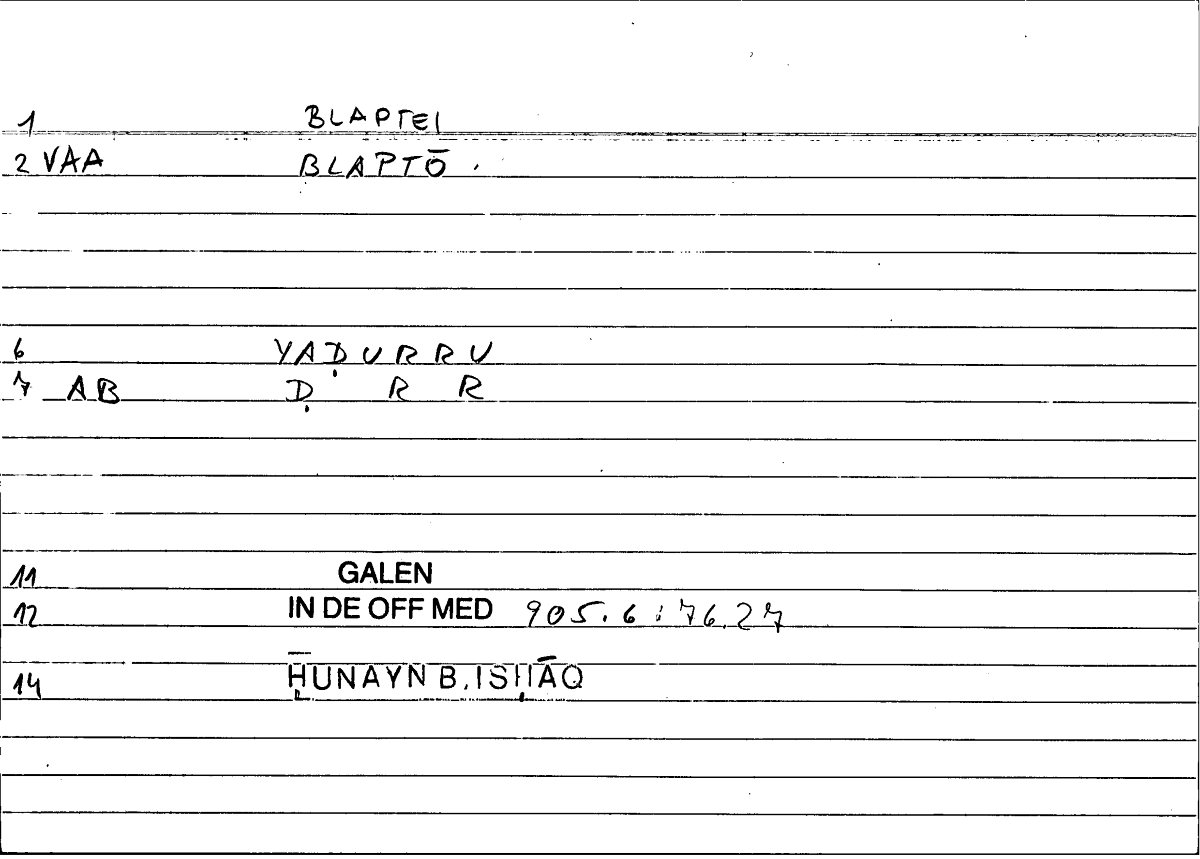 1 BLAPTEI
2 VAA BLAPTŌ.
6 YAḌURRU
7 AB Ḍ R R
11 GALEN
12 IN DE OFF MED 905.6:76.27
14 ḤUNAYN B. ISḤĀQ